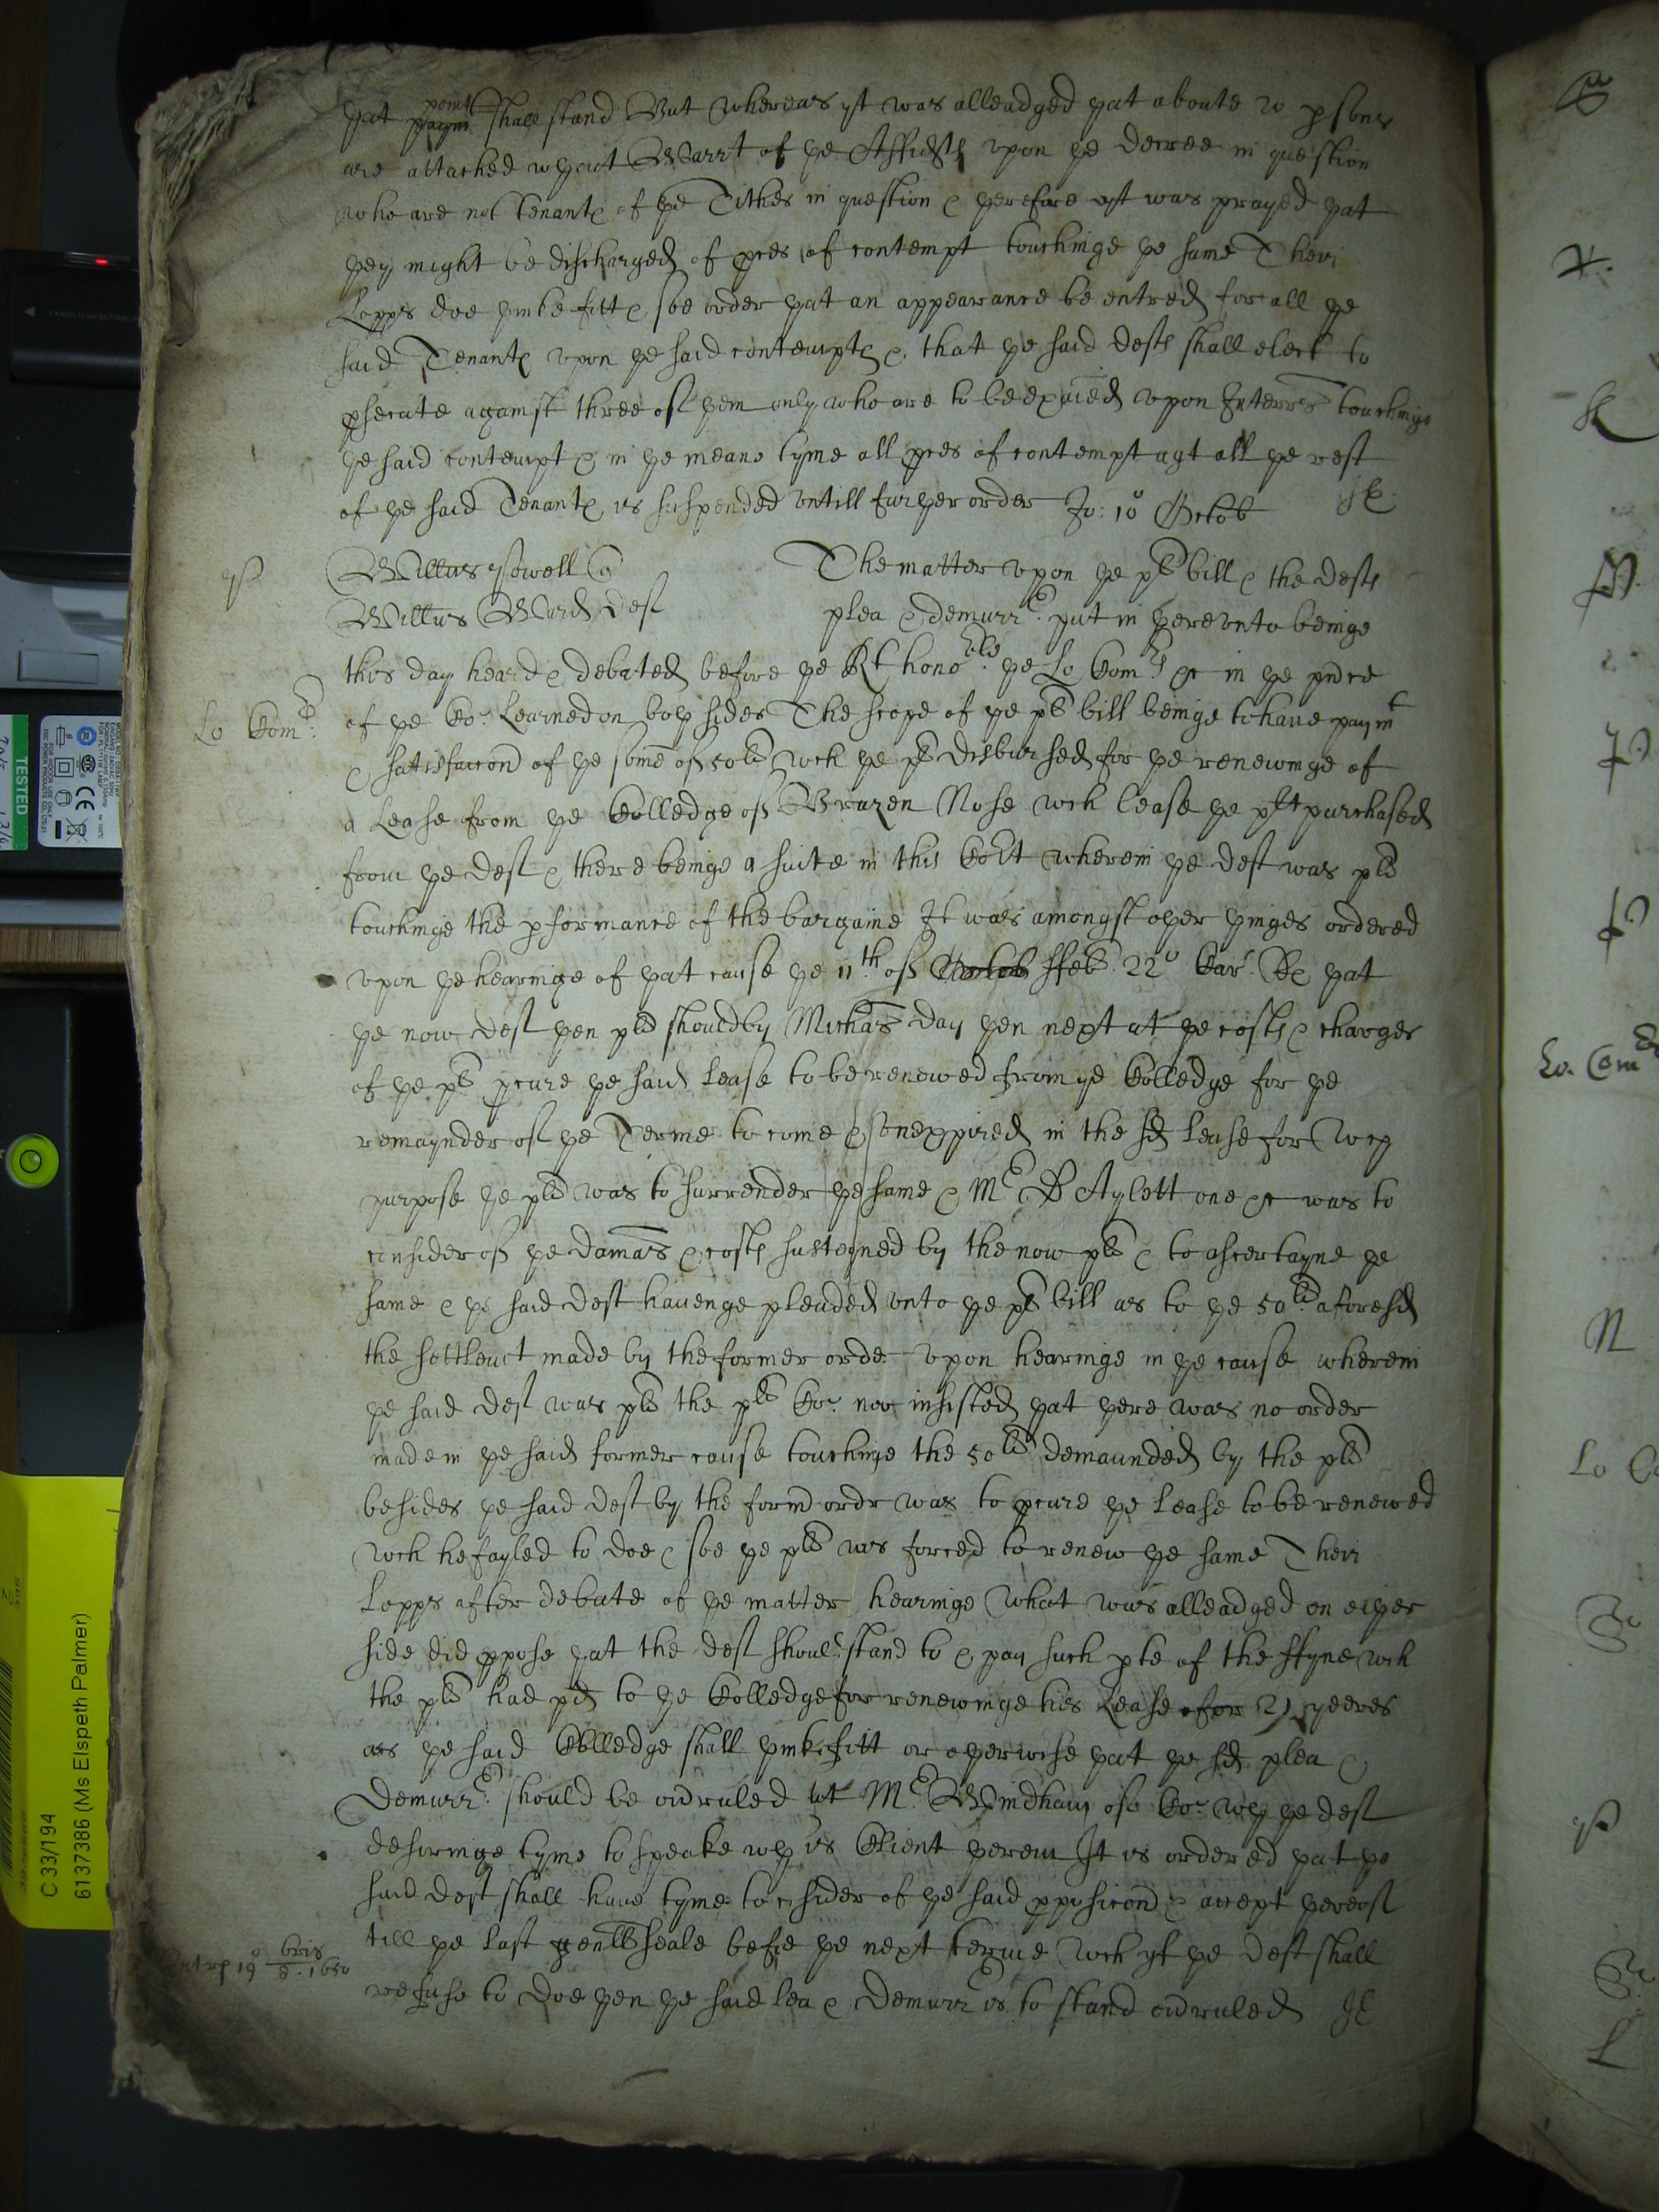 yat point shall stand But whereas yt was alleadged yat aboute 20 psons
are attached wthout Warrt of ye Affidts upon ye decree in question
who are not Tenants of ye Tithes in question & yerefore yt was prayed yat
yey might be discharged of pces of contempt touchinge ye same Their
Lopps doe yinke fitt & soe order yat an appearance be entred for all ye
said Tenants upon ye said contempts & that ye said defts shall elect to
psecute against three of yem only who are to be exaied upon Interrs touchinge
ye said contempt & in ye meane tyme all pces of contempt agt all ye rest
of ye said Tenants is suspended untill furyer order Jo: 10 Octob
Willus Powell
Willus Ward Def
The matter upon ye pls bill & the defts
plea & demurrr. put in yereunto beinge
this day heard & debated before ye Rt honoble ye Lo Comrs &c in ye pnce
Lo Comrs
of ye Co. Learned on boy sides The scope of ye pls bill beinge to have paymt
& satisfaccon of ye some of 50li wch ye pl disbursed for ye renewinge of
a Lease from ye Colledge of Brazen Nose wch lease ye plt purchased
from ye def & there beinge a suite in this Cort wherein ye deft was pl
touchinge the pformance of the bargaine It was amongst oyer yinges ordered
upon ye hearinge of yat cause ye 11th of Octob ffeb 22o Car. Re yat
ye now def yen pl should by Michas day yen next at ye costs & charges
of ye pl pcure ye said Lease to be renewed from ye Colledge for ye
remaynder of ye Terme to come & unexpired in the sd Lease for wch
purpose ye pl was to surrender ye same & Mr Dr Aylett one &c was to
consider of ye damas & costs susteyned by the now pl & to ascertayne ye
same & ye said deft havenge pleaded unto ye pls bill as to ye 50li aforesd
the settlemt made by the former order upon hearinge in ye cause wherein
ye said def was pl the pls Co. now insisted yat yere was no order
made in ye said former cause touchinge the 50li demaunded by the pl
besides ye said deft by the formr ordr was to pcure ye Lease to be renewed
wch he fayled to doe & soe ye pl was forced to renew ye same Their
Lopps after debate of ye matter hearinge what was alleadged on eiyer
side did ppose yat the def should stand to & pay such pte of the ffyne wch
the pl had pd to ye Colledge for renewinge his Lease for 21 yeeres
as ye said Colledge shall yinke fitt or oyerwise yat ye sd plea &
Demurrr. should be ovrruled but Mr. Windham of Co. wth ye def
desiringe tyme to speake wth is Client yerein It is ordered yat ye
said deft shall have tyme to csider of ye said pposicon & accept yereof
till ye last genll Seale before ye next terme wch yf ye deft shall
refuse to doe yen ye said lea & Demurrr is to stand ovrruled
Entr 19o 8bris 1650
Lo. Comrs
N
Lo Co
L
TESTED
C 33/194
6137386 (Ms Elspeth Palmer)